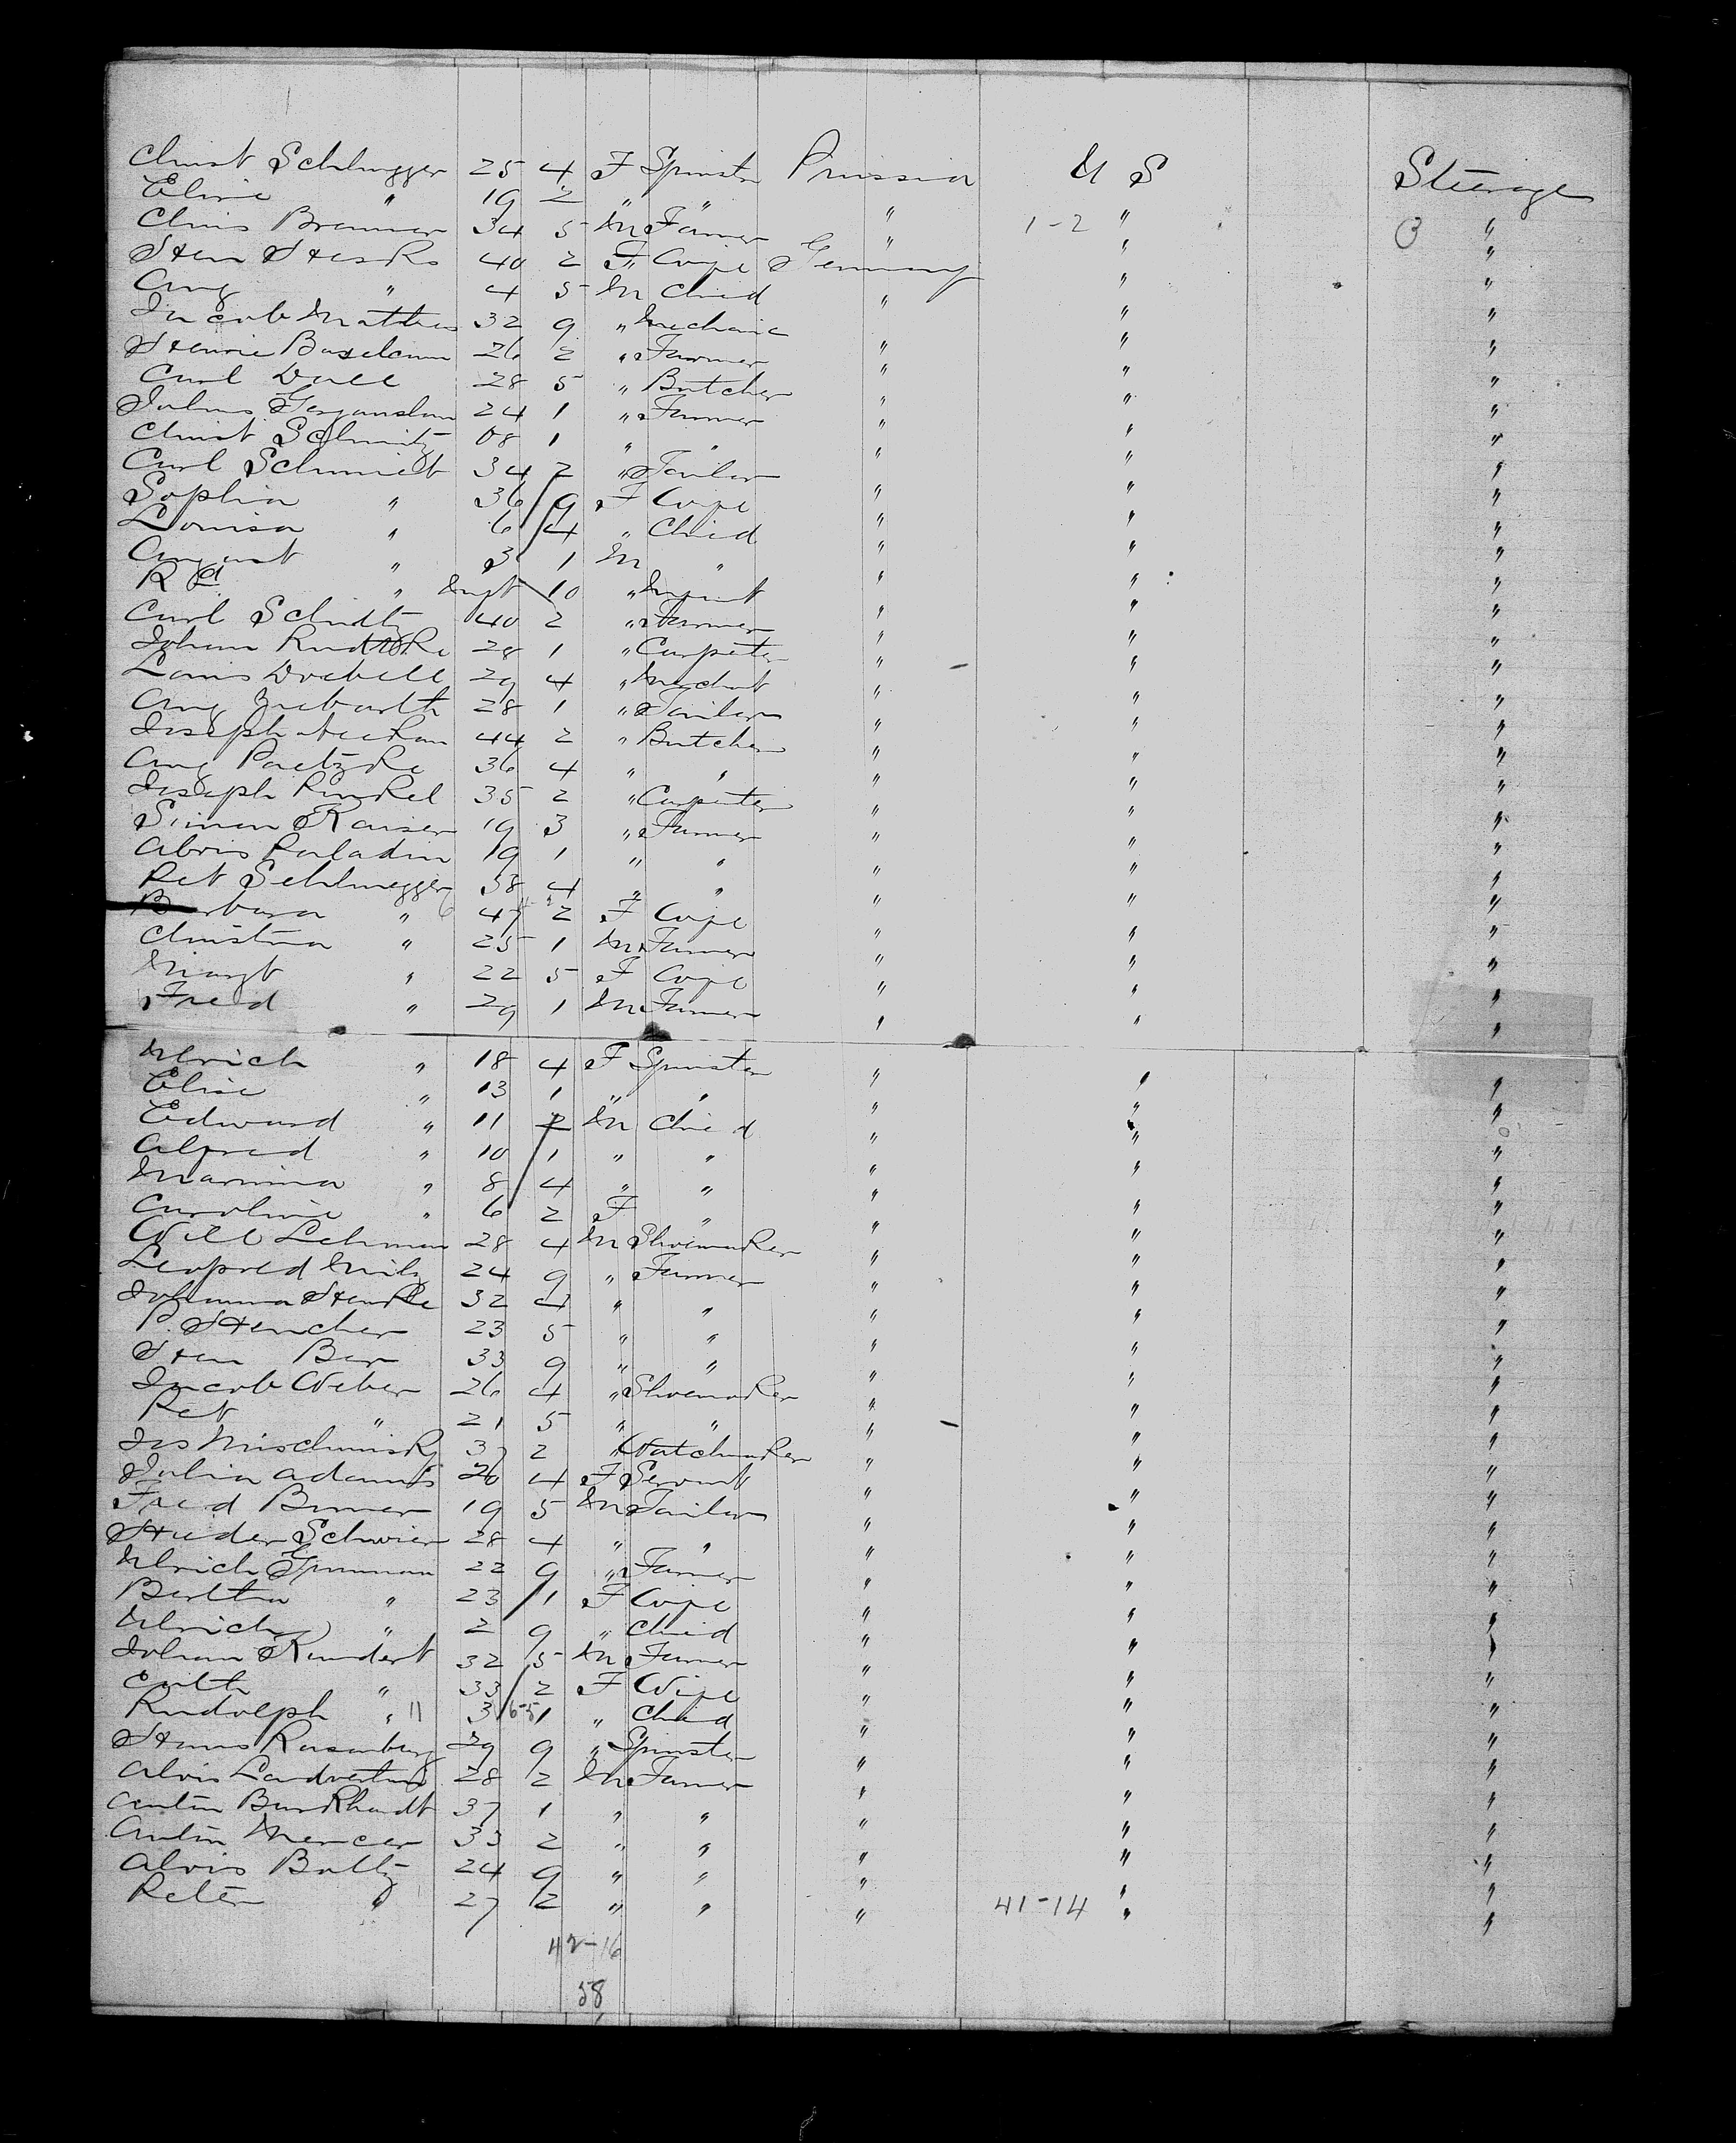 Christ Schlunegger 25 4 F Spinster Prussia U S Steerage
Elise " 19 2 " " " " "
Chris Brunner 34 5 M Farmer " 1-2 " "
Hen 40 2 F Wife Germany " "
Aug " 4 5 M Child " " "
Jacob Mathews 32 9 " Mechanic " " "
Henrie 26 2 " Farmer " " "
Carl Dall 28 5 " Butcher " " "
Julius 24 1 " Farmer " " "
Christ Schmitz 1 " " " " "
Carl Schmidt 34 2 " Tailor " " "
Sophia " 36 9 F Wife " " "
Louisa " 6 4 " Child " " "
August " 3 1 M " " " "
Rd " Inft 10 " Infant " " "
Carl Schultz 40 2 " Farmer " " "
Johan 28 1 " Carpeter " " "
Louis Drebell 29 4 " Merchat " " "
Aug 28 1 " Tailor " " "
Joseph 44 2 " Butcher " " "
Aug Paetzke 36 4 " " " " "
Joseph Kunkel 35 2 " Carpeter " " "
Simon Kaiser 19 3 " Farmer " " "
Alois Paladin 19 1 " " " " "
Pet Schlunegger 58 4 " " " " "
Barbara " 6 47 2 F Wife " " "
Christina " 25 1 M Farmer " " "
Margt " 22 5 F Wife " " "
Fred " 29 1 M Farmer " " "
Ulrich " 18 4 F Spinster " " "
Elise " 13 1 " " " " "
Edward " 11 2 M Child " " "
Alfred " 10 1 " " " " "
" 8 4 " " " " "
Caroline " 6 2 F " " " "
Will Lehman 28 4 M Shoemaker " " "
Leopold 24 9 " Farmer " " "
Johanna Henke 32 4 " " " " "
P. Hencher 23 5 " " " " "
Hen Ber 33 9 " " " " "
Jacob Weber 26 4 " Shoemaker " " "
Pet " 21 5 " " " " "
Jos 37 2 " Watchmaker " " "
Julia Adams 20 4 F Servant " " "
Fred 19 5 M Tailor " " "
Schwier 28 4 " " " " "
Ulrich 22 9 " Farmer " " "
Bertha " 23 1 F Wife " " "
Ulrich " 2 9 " Child " " "
Johan Kundert 32 5 M Farmer " " "
" 33 2 F Wife " " "
Rudolph " 11 3 6-5 1 " Child " " "
Hans Rosenberg 29 9 " Spinster " " "
Alois 28 2 M Farmer " " "
Anton Burkhardt 37 1 " " " " "
Anton Mencer 33 2 " " " " "
Alois Baltz 24 9 " " " " "
Peter " 27 2 " " " 41-14 " "
42-16
58